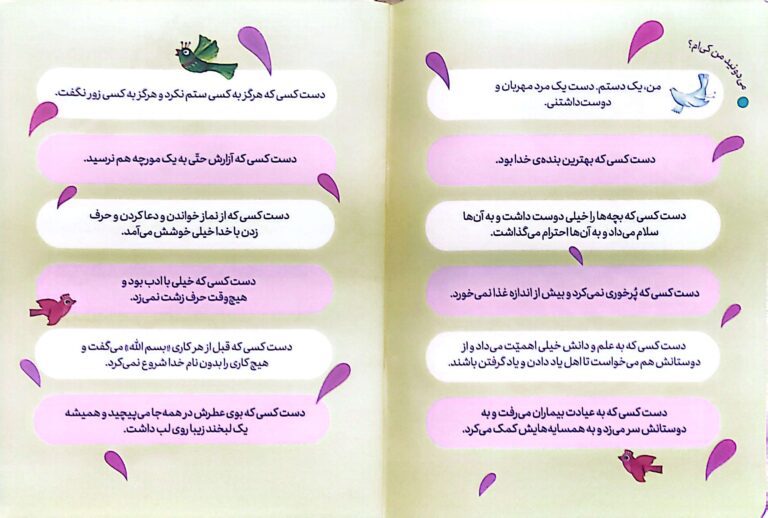 می‌دونید من کی‌ام؟
من، یک دستم. دست یک مرد مهربان و
دوست‌داشتنی.
دست کسی که بهترین بنده‌ی خدا بود.
دست کسی که بچه‌ها را خیلی دوست داشت و به آن‌ها
سلام می‌داد و به آن‌ها احترام می‌گذاشت.
دست کسی که پُرخوری نمی‌کرد و بیش از اندازه غذا نمی‌خورد.
دست کسی که به علم و دانش خیلی اهمیّت می‌داد و از
دوستانش هم می‌خواست تا اهل یاد دادن و یاد گرفتن باشند.
دست کسی که به عیادت بیماران می‌رفت و به
دوستانش سر می‌زد و به همسایه‌هایش کمک می‌کرد.
دست کسی که هرگز به کسی ستم نکرد و هرگز به کسی زور نگفت.
دست کسی که آزارش حتّی به یک مورچه هم نرسید.
دست کسی که از نماز خواندن و دعا کردن و حرف
زدن با خدا خیلی خوشش می‌آمد.
دست کسی که خیلی با ادب بود و
هیچ‌وقت حرف زشت نمی‌زد.
دست کسی که قبل از هر کاری «بسم الله» می‌گفت و
هیچ کاری را بدون نام خدا شروع نمی‌کرد.
دست کسی که بوی عطرش در همه‌جا می‌پیچید و همیشه
یک لبخند زیبا روی لب داشت.